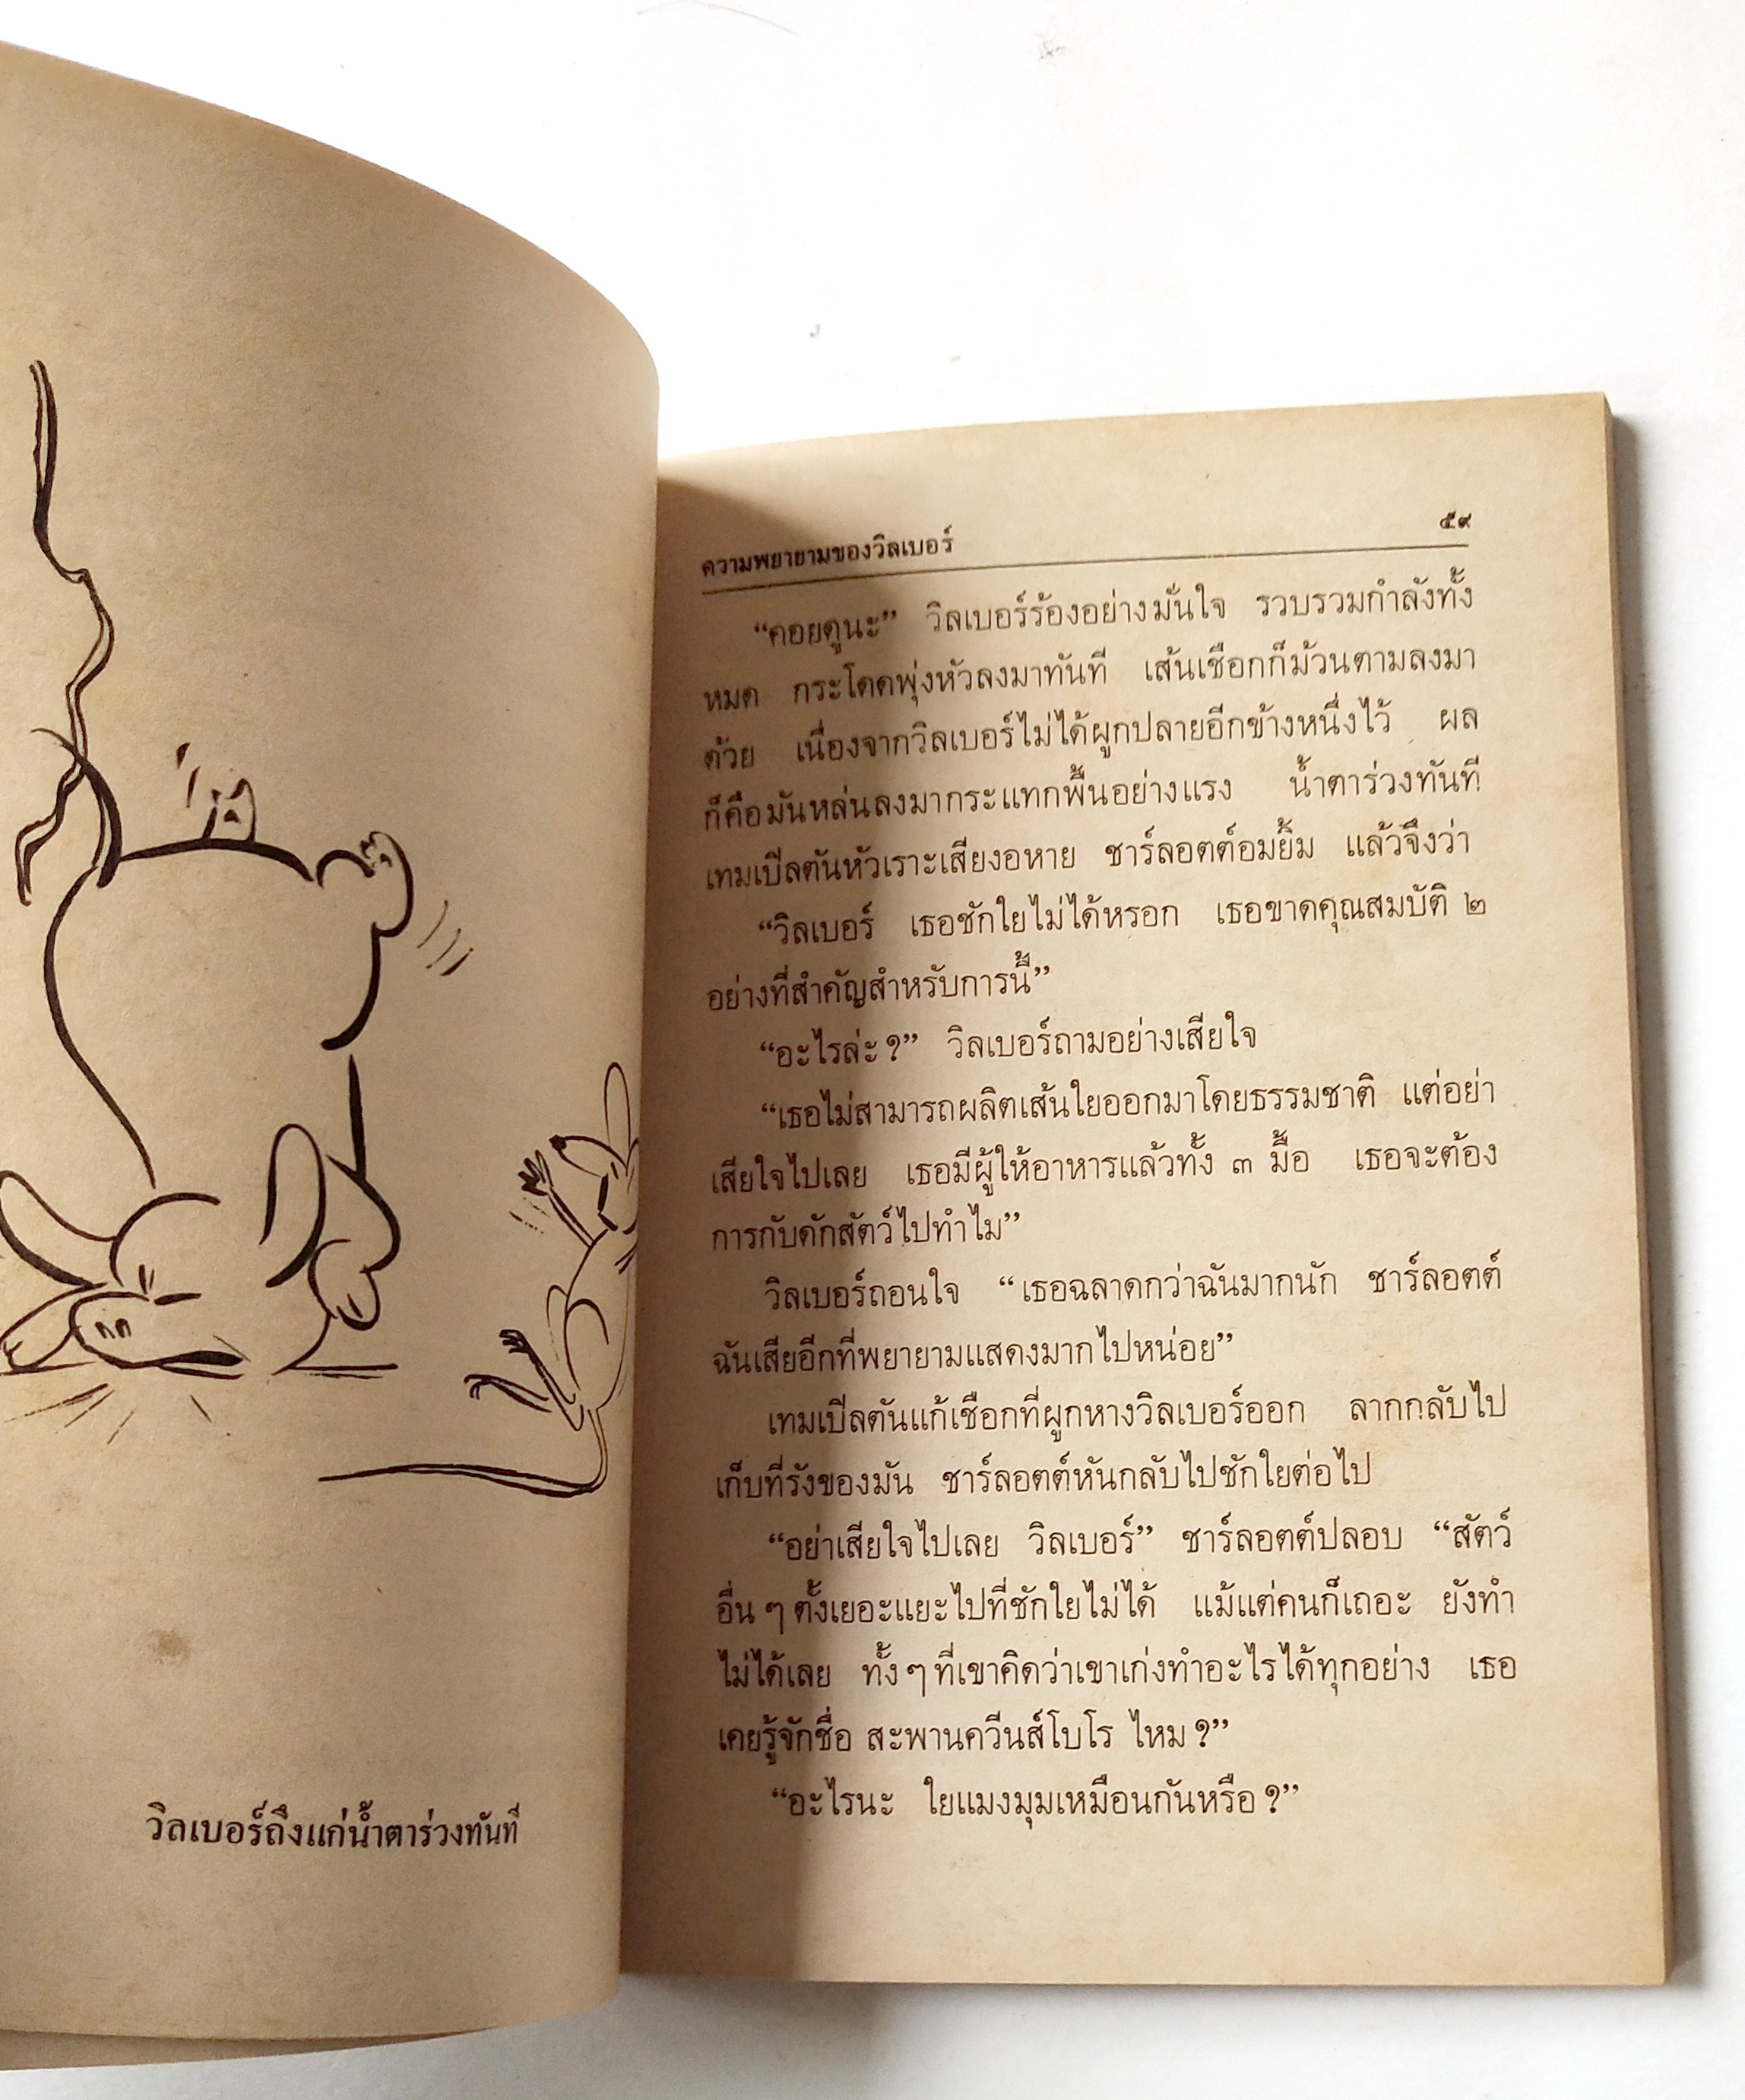 วิลเบอร์ถึงแก่น้ำตาร่วงทันที
ความพยายามของวิลเบอร์ ๕๙
“คอยดูนะ” วิลเบอร์ร้องอย่างมั่นใจ รวบรวมกำลังทั้ง
หมด กระโดดพุ่งหัวลงมาทันที เส้นเชือกก็ม้วนตามลงมา
ด้วย เนื่องจากวิลเบอร์ไม่ได้ผูกปลายอีกข้างหนึ่งไว้ ผล
ก็คือมันหล่นลงมากระแทกพื้นอย่างแรง น้ำตาร่วงทันที
เทมเปิลตันหัวเราะเสียงอหาย ชาร์ลอตต์อมยิ้ม แล้วจึงว่า
“วิลเบอร์ เธอชักใยไม่ได้หรอก เธอขาดคุณสมบัติ ๒
อย่างที่สำคัญสำหรับการนี้”
“อะไรล่ะ?” วิลเบอร์ถามอย่างเสียใจ
“เธอไม่สามารถผลิตเส้นใยออกมาโดยธรรมชาติ แต่อย่า
เสียใจไปเลย เธอมีผู้ให้อาหารแล้วทั้ง ๓ มื้อ เธอจะต้อง
การกับดักสัตว์ไปทำไม”
วิลเบอร์ถอนใจ “เธอฉลาดกว่าฉันมากนัก ชาร์ลอตต์
ฉันเสียอีกที่พยายามแสดงมากไปหน่อย”
เทมเปิลตันแก้เชือกที่ผูกหางวิลเบอร์ออก ลากกลับไป
เก็บที่รังของมัน ชาร์ลอตต์หันกลับไปชักใยต่อไป
“อย่าเสียใจไปเลย วิลเบอร์” ชาร์ลอตต์ปลอบ “สัตว์
อื่น ๆ ตั้งเยอะแยะไปที่ชักใยไม่ได้ แม้แต่คนก็เถอะ ยังทำ
ไม่ได้เลย ทั้ง ๆ ที่เขาคิดว่าเขาเก่งทำอะไรได้ทุกอย่าง เธอ
เคยรู้จักชื่อ สะพานควีนส์โบโร ไหม ?”
“อะไรนะ ใยแมงมุมเหมือนกันหรือ ?”